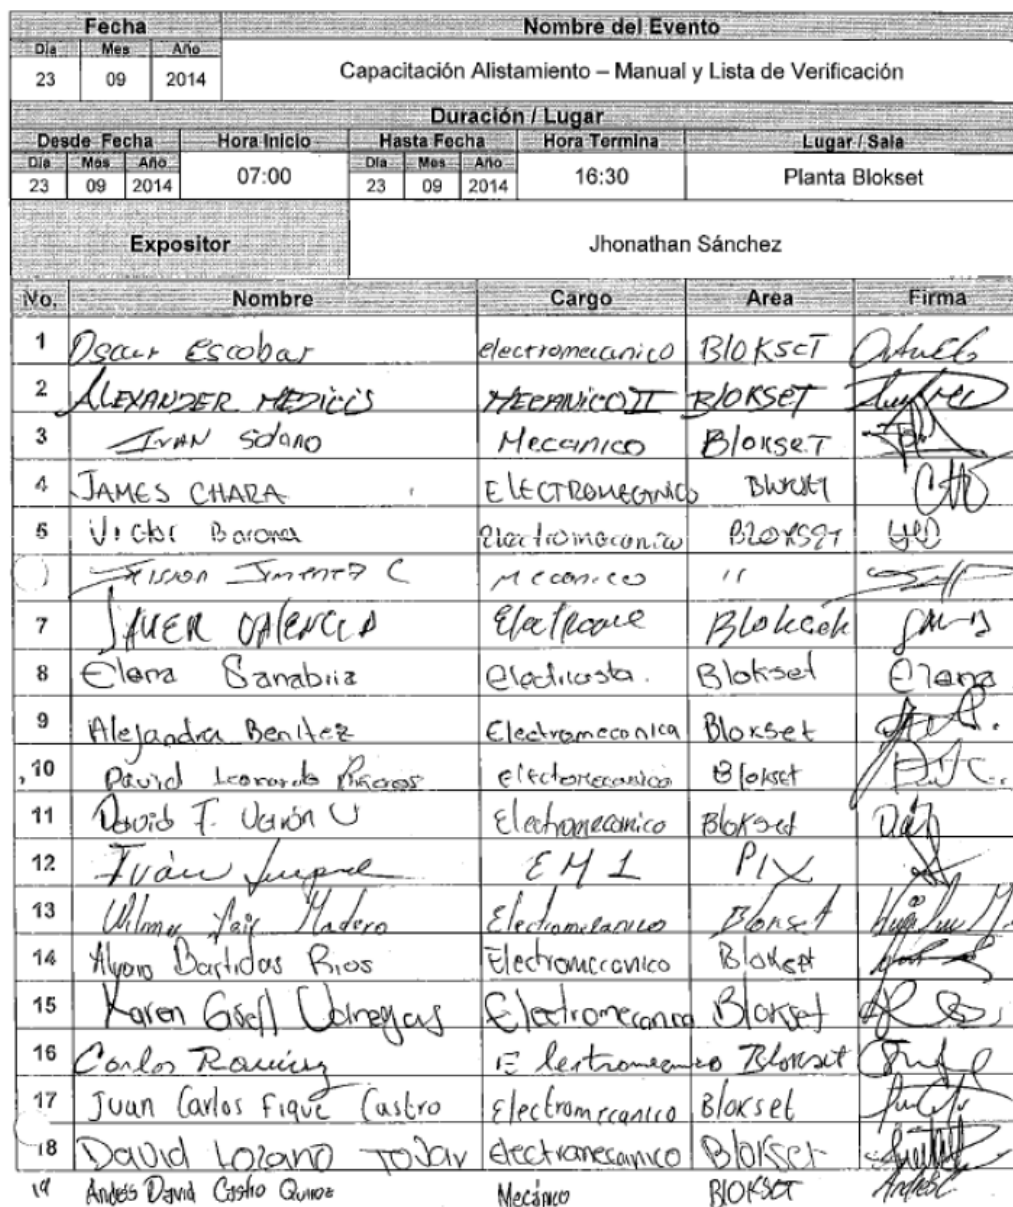 Fecha Nombre del Evento
Día Mes Año
23 09 2014 Capacitación Alistamiento – Manual y Lista de Verificación
Duración / Lugar
Desde Fecha Hora Inicio Hasta Fecha Hora Termina Lugar / Sala
Día Mes Año 07:00 Día Mes Año 16:30 Planta Blokset
23 09 2014 23 09 2014
Expositor Jhonathan Sánchez
No. Nombre Cargo Area Firma
1 Oscar Escobar electromecanico BlOKSET
2 ALEXANDER MEDICIS MECANICO II BlOKSET
3 IVAN Solano Mecanico BlokSET
4 JAMES CHARA ELECTROMECANICO
5 Victor Barona electromecanico BLOKSET
Jimenez C Mecanico "
7 VALENCIA
8 Elena Sanabria electricista. Blokset Elena
9 Alejandra Benitez Electromecanica Blokset
10 David Leonardo electromecanico Blokset
11 David F. Varón U Electromecanico Blokset
12 Iván Luque EM 1 PIX
13 Wilmer Yair Madero Electromecanico Blokset
14 Alvaro Bastidas Rios Electromecanico Blokset
15 Karen Gisell Electromecanica Blokset
16 Carlos Ramirez Electromecanico Blokset
17 Juan Carlos Fique Castro Electromecanico Blokset
18 David Lozano Tovar electromecanico Blokset
19 Andrés David Castro Quiroz Mecánico BlOKSET